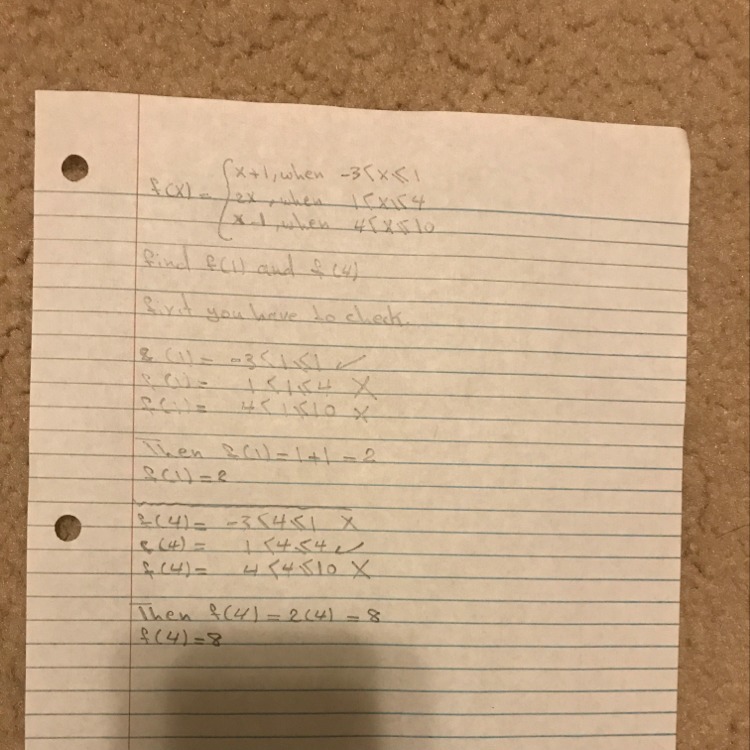 f(x) = { x+1, when -3<x≤1
2x, when 1<x≤4
x-1, when 4<x≤10
find f(1) and f(4)
first you have to check.
f(1) = -3<1≤1 ✓
f(1) = 1<1≤4 X
f(1) = 4<1≤10 X
Then f(1) = 1+1 = 2
f(1) = 2
f(4) = -3<4≤1 X
f(4) = 1<4≤4 ✓
f(4) = 4<4≤10 X
Then f(4) = 2(4) = 8
f(4) = 8